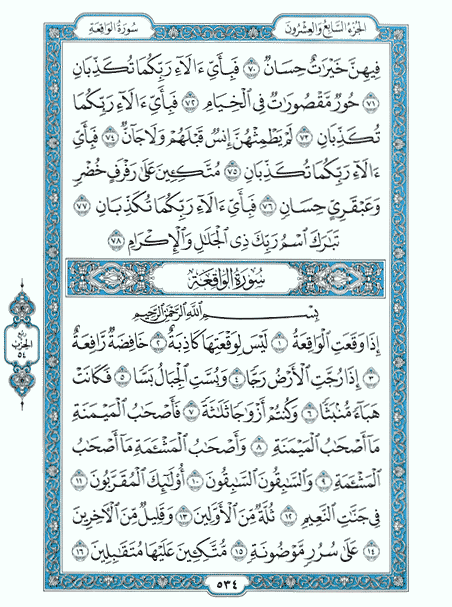 سُورَةُ الوَاقِعَةِ
الجُزْءُ السَّابِعُ وَالعِشْرُونَ
فِيهِنَّ خَيْرَٰتٌ حِسَانٌ ٧٠ فَبِأَىِّ ءَالَآءِ رَبِّكُمَا تُكَذِّبَانِ
٧١ حُورٌ مَّقْصُورَٰتٌ فِى ٱلْخِيَامِ ٧٢ فَبِأَىِّ ءَالَآءِ رَبِّكُمَا
تُكَذِّبَانِ ٧٣ لَمْ يَطْمِثْهُنَّ إِنسٌ قَبْلَهُمْ وَلَا جَآنٌّ ٧٤ فَبِأَىِّ
ءَالَآءِ رَبِّكُمَا تُكَذِّبَانِ ٧٥ مُتَّكِـِٔينَ عَلَىٰ رَفْرَفٍ خُضْرٍ
وَعَبْقَرِىٍّ حِسَانٍ ٧٦ فَبِأَىِّ ءَالَآءِ رَبِّكُمَا تُكَذِّبَانِ ٧٧
تَبَٰرَكَ ٱسْمُ رَبِّكَ ذِى ٱلْجَلَٰلِ وَٱلْإِكْرَامِ ٧٨
سُورَةُ الوَاقِعَةِ
بِسْمِ ٱللَّهِ ٱلرَّحْمَٰنِ ٱلرَّحِيمِ
إِذَا وَقَعَتِ ٱلْوَاقِعَةُ ١ لَيْسَ لِوَقْعَتِهَا كَاذِبَةٌ ٢ خَافِضَةٌ رَّافِعَةٌ
٣ إِذَا رُجَّتِ ٱلْأَرْضُ رَجًّا ٤ وَبُسَّتِ ٱلْجِبَالُ بَسًّا ٥ فَكَانَتْ
هَبَآءً مُّنۢبَثًّا ٦ وَكُنتُمْ أَزْوَٰجًا ثَلَٰثَةً ٧ فَأَصْحَٰبُ ٱلْمَيْمَنَةِ
مَآ أَصْحَٰبُ ٱلْمَيْمَنَةِ ٨ وَأَصْحَٰبُ ٱلْمَشْـَٔمَةِ مَآ أَصْحَٰبُ
ٱلْمَشْـَٔمَةِ ٩ وَٱلسَّٰبِقُونَ ٱلسَّٰبِقُونَ ١٠ أُو۟لَٰٓئِكَ ٱلْمُقَرَّبُونَ ١١
فِى جَنَّٰتِ ٱلنَّعِيمِ ١٢ ثُلَّةٌ مِّنَ ٱلْأَوَّلِينَ ١٣ وَقَلِيلٌ مِّنَ ٱلْءَاخِرِينَ
١٤ عَلَىٰ سُرُرٍ مَّوْضُونَةٍ ١٥ مُّتَّكِـِٔينَ عَلَيْهَا مُتَقَٰبِلِينَ ١٦
ربع
الحزب
٥٤
٥٣٤